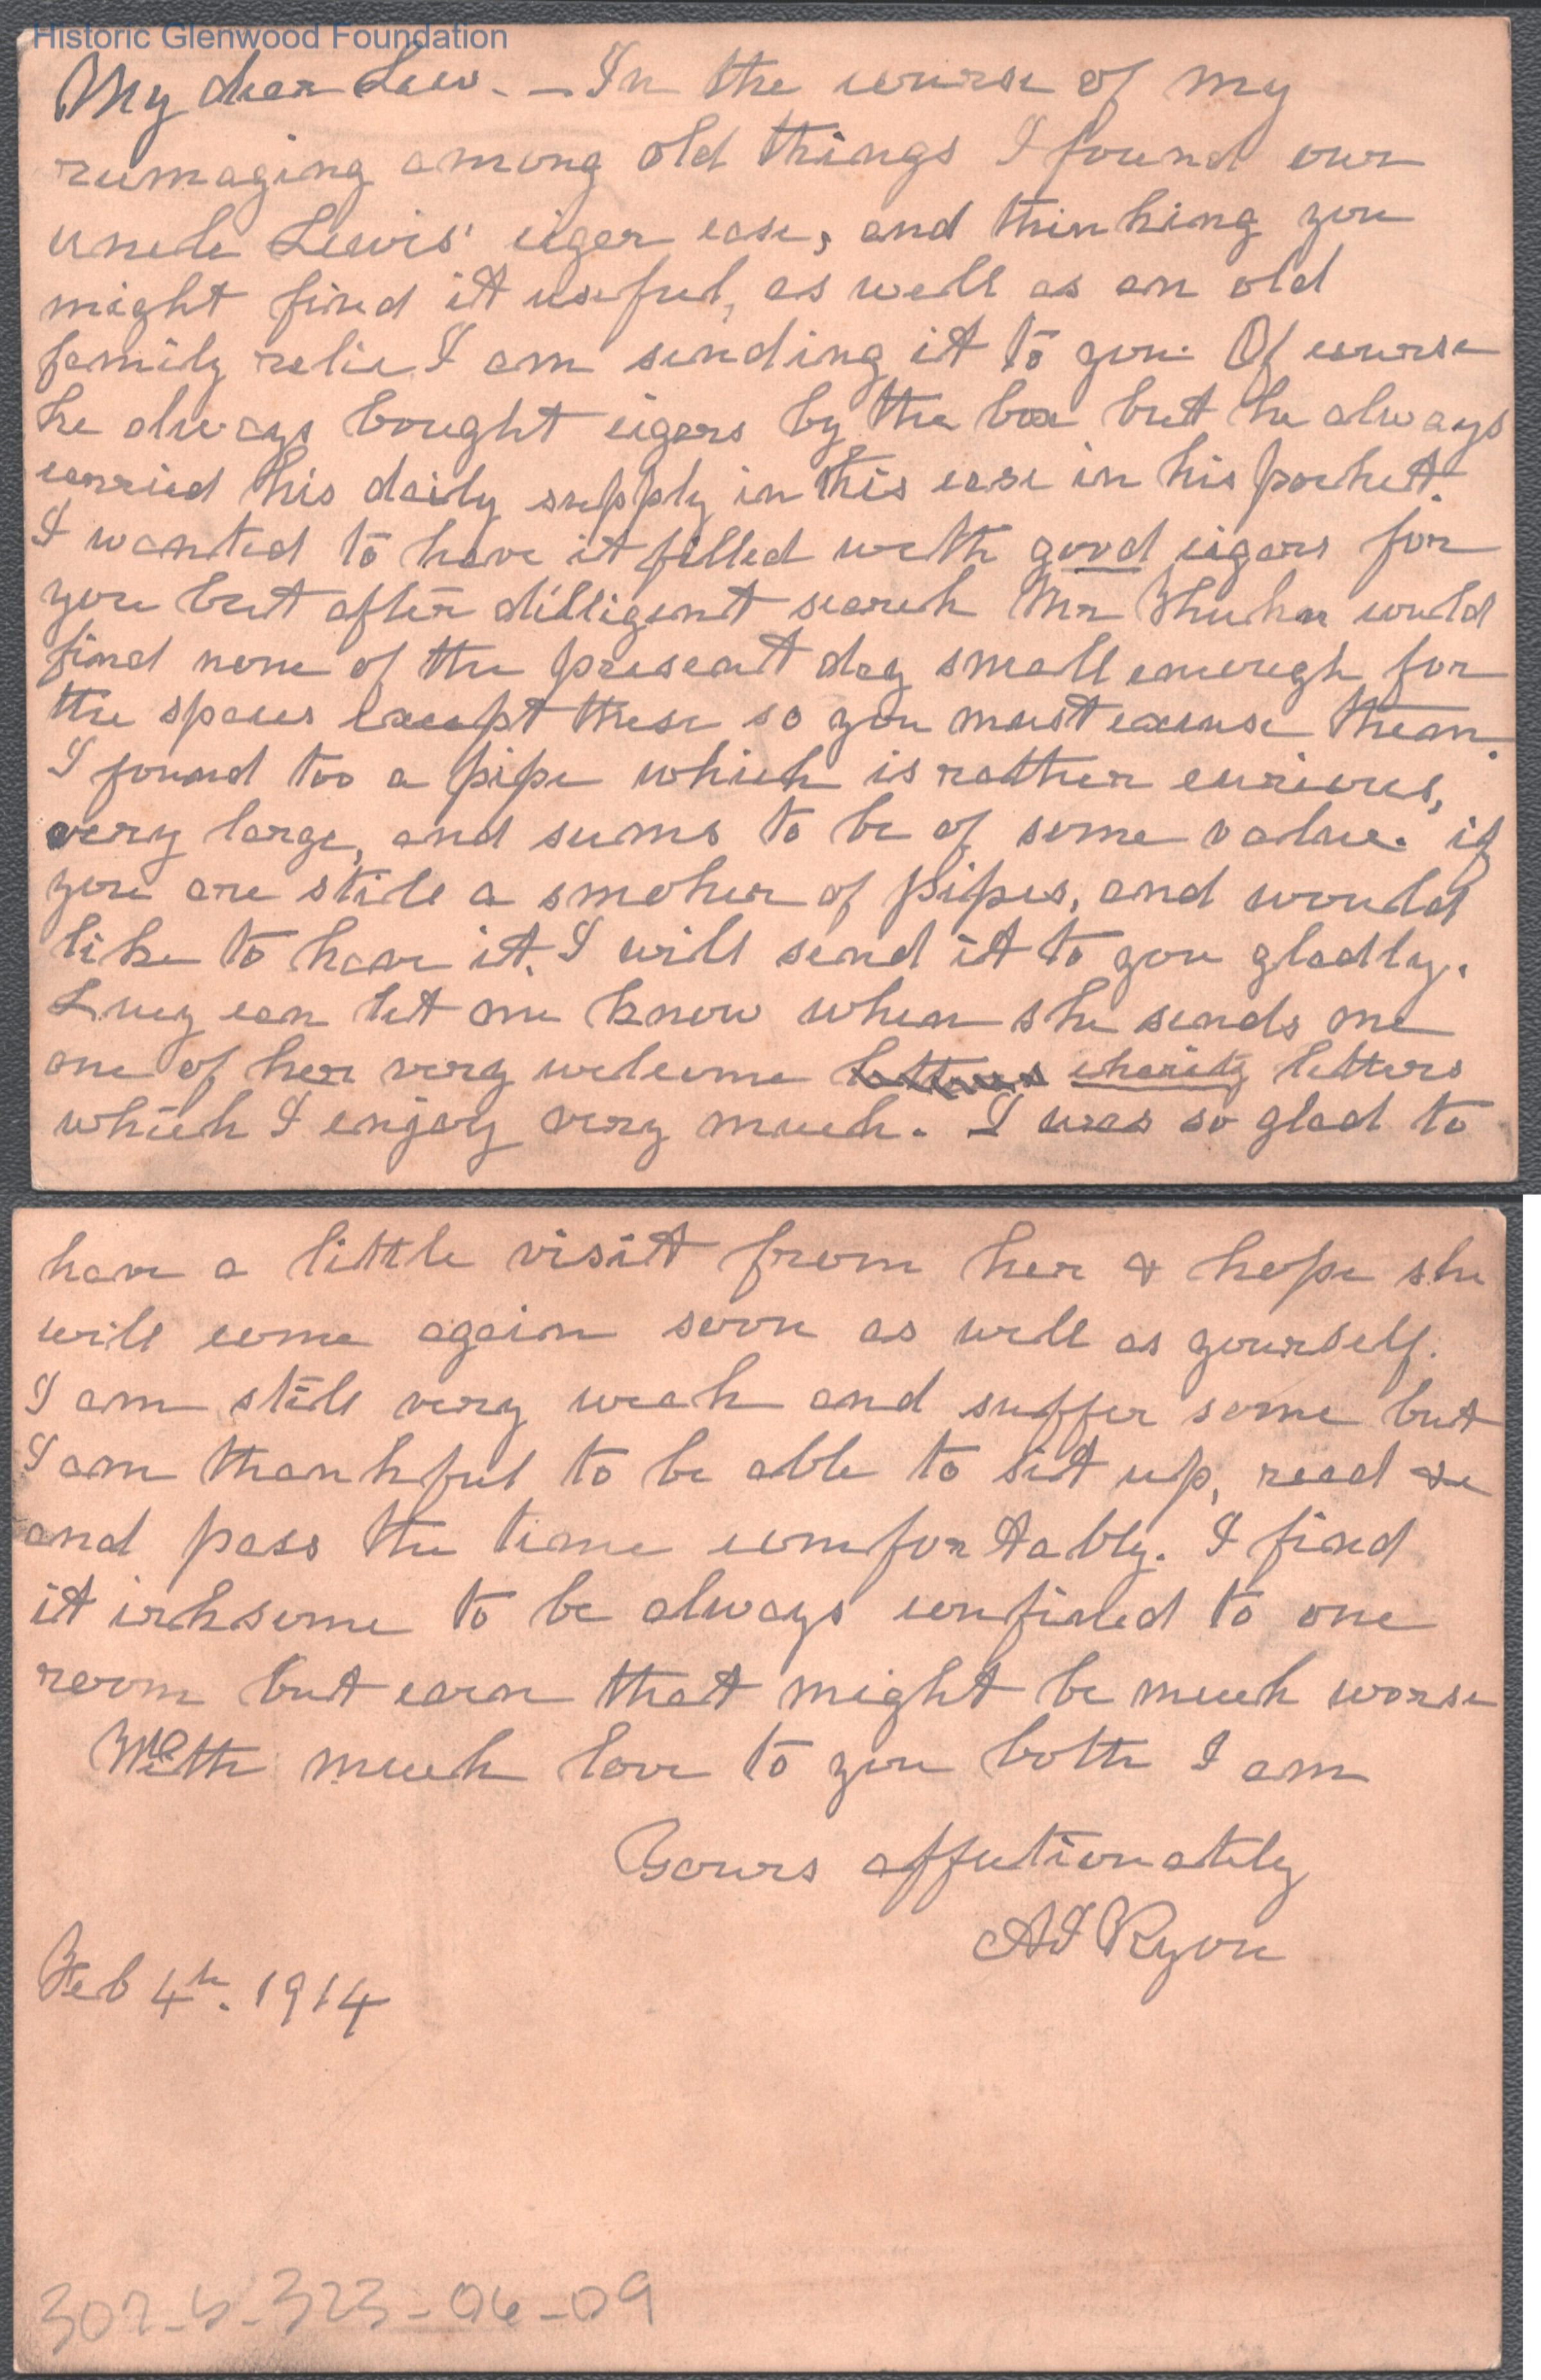 Historic Glenwood Foundation
My dear Lew. - In the course of my
rumaging among old things I found our
uncle Lewis' cigar case, and thinking you
might find it useful, as well as an old
family relic I am sending it to you. Of course
he always bought cigars by the box but he always
carried his daily supply in this case in his pocket.
I wanted to have it filled with good cigars for
you but after dilligent search Mr could
find none of the present day small enough for
the spaces except these so you must excuse them.
I found too a pipe which is rather curious,
very large, and seems to be of some value. if
you are still a smoker of pipes, and would
like to have it, I will send it to you gladly.
Lucy can let me know when she sends me
one of her very welcome letters charity letters
which I enjoy very much. I was so glad to
have a little visit from her & hope she
will come again soon as well as yourself.
I am still very weak and suffer some but
I am thankful to be able to sit up, read &c
and pass the time comfortably. I find
it irksome to be always confined to one
room but even that might be much worse
With much love to you both I am
Yours affectionately
AJ Ryon
Feb 4th. 1914
302-S-323-06-09